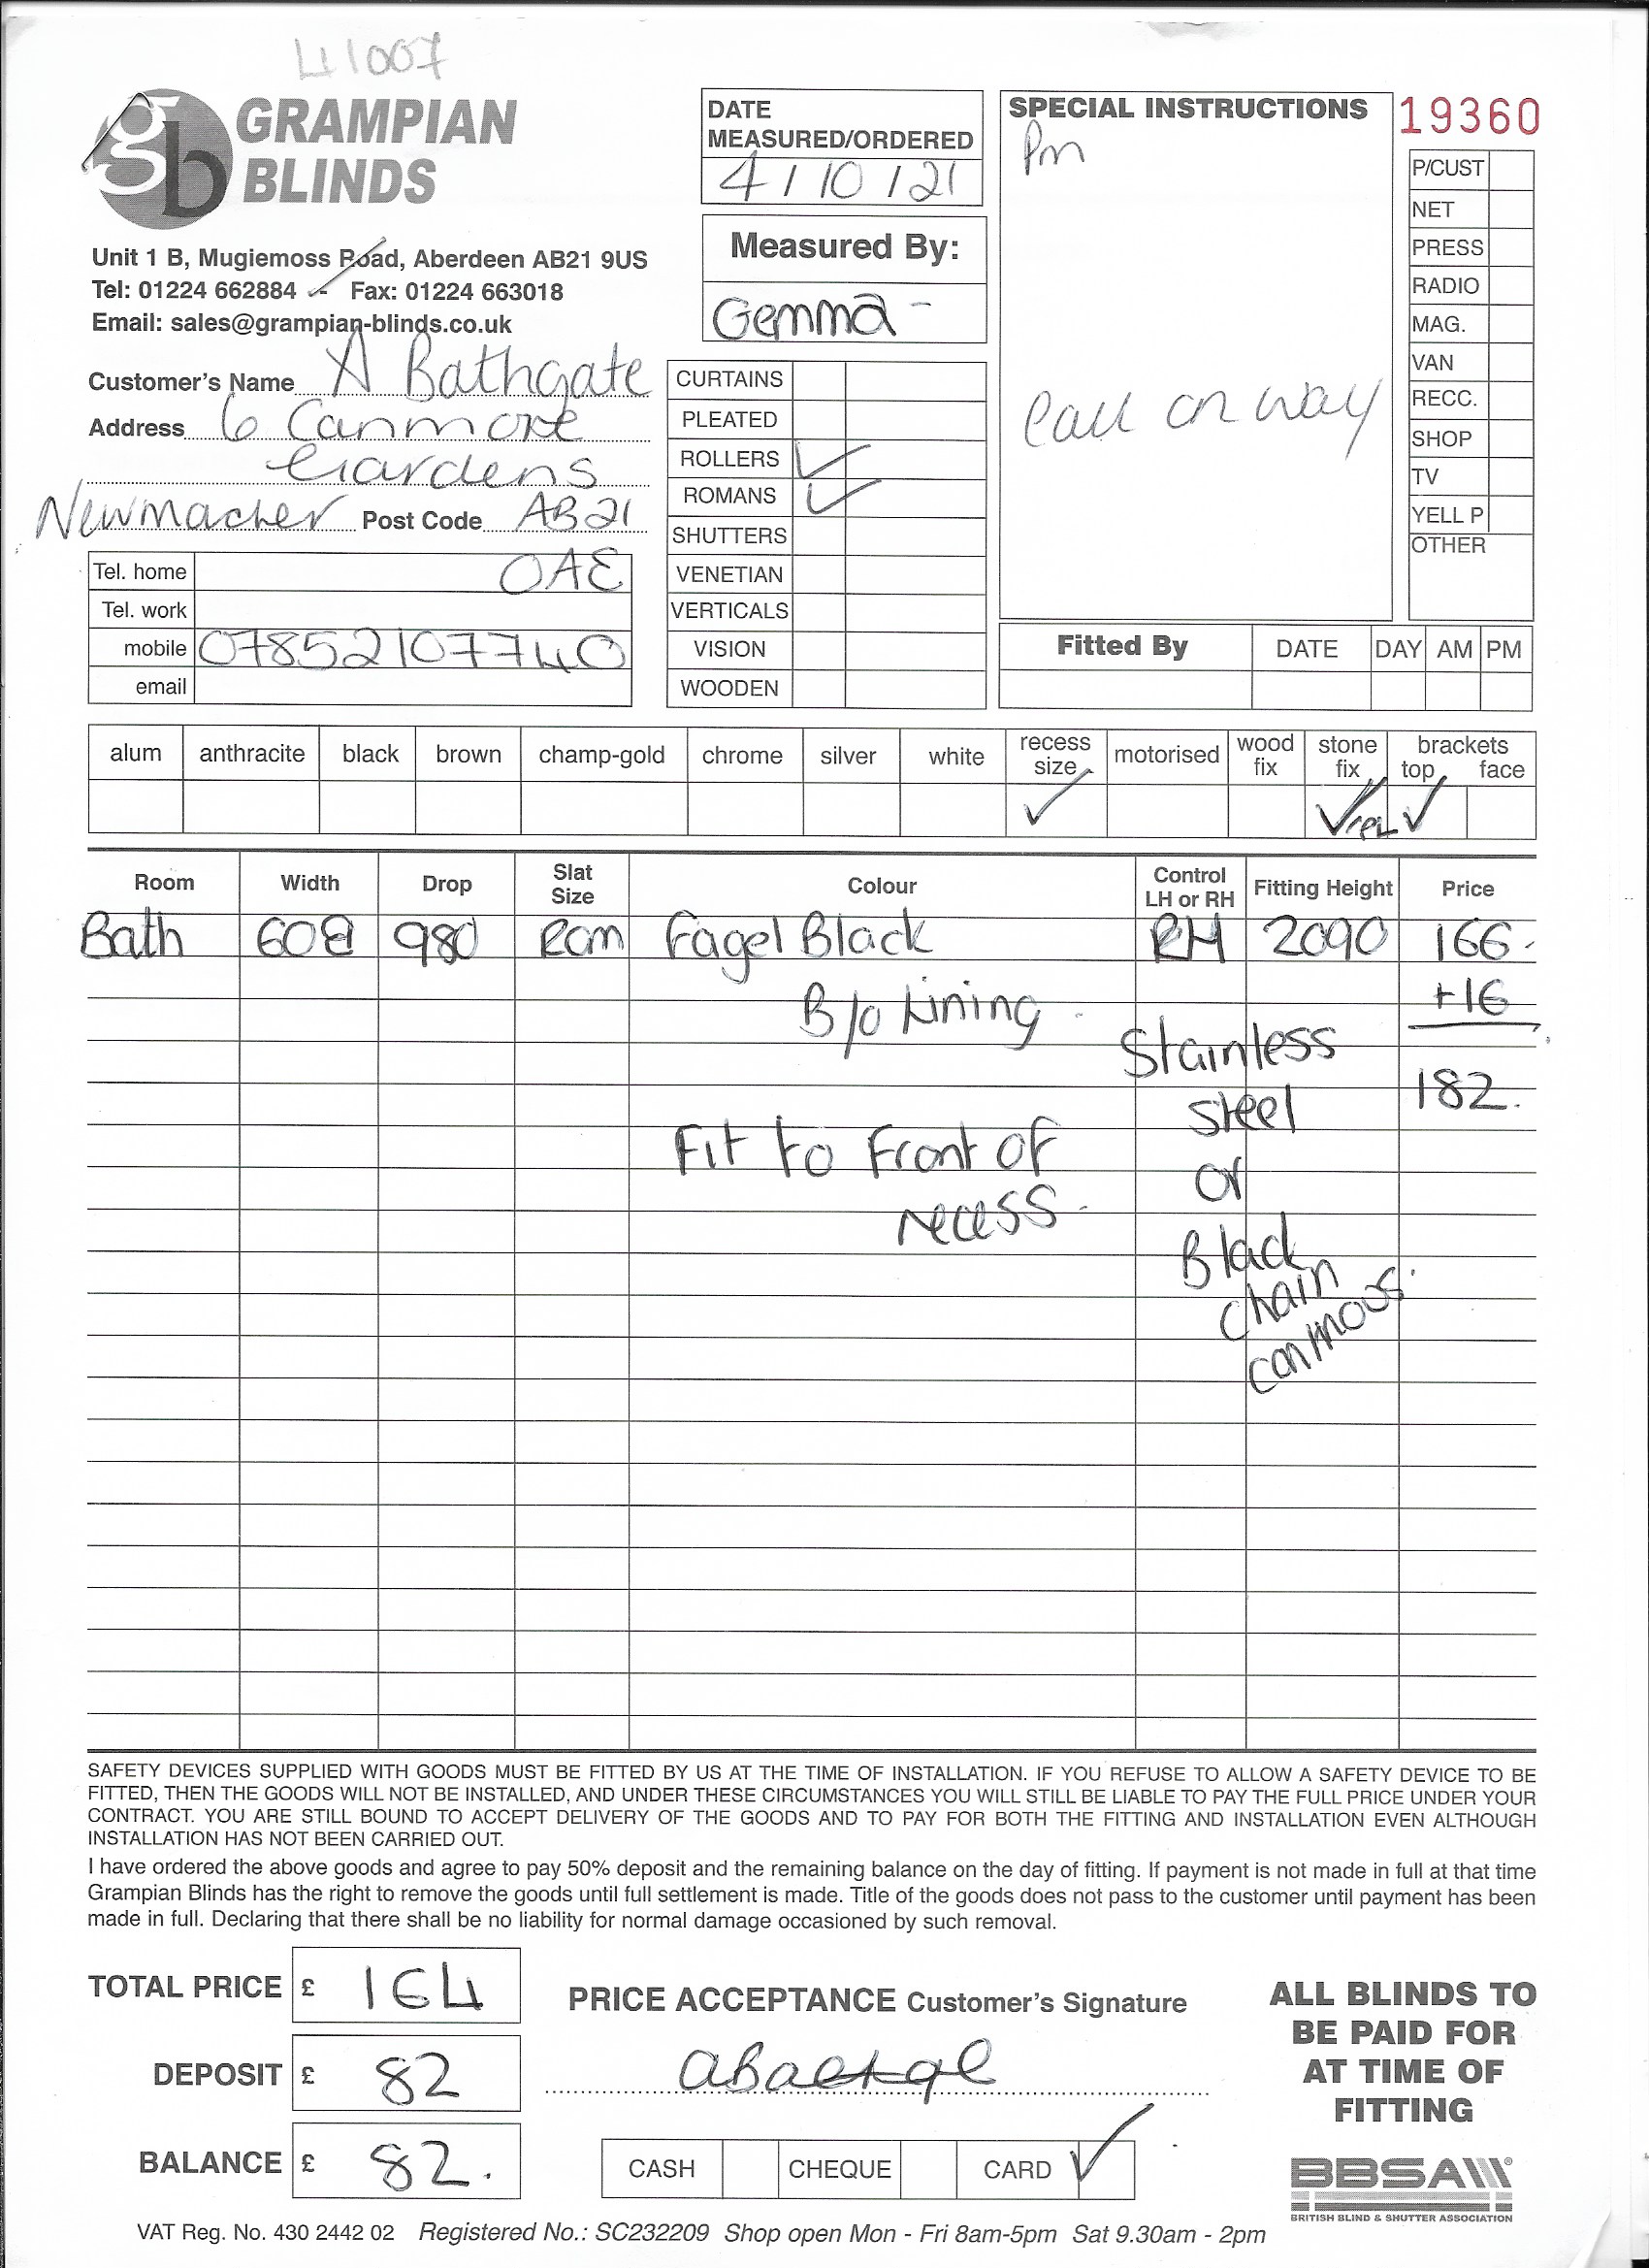 41007
gb GRAMPIAN
BLINDS
Unit 1 B, Mugiemoss Road, Aberdeen AB21 9US
Tel: 01224 662884 Fax: 01224 663018
Email: sales@grampian-blinds.co.uk
Customer's Name A Bathgate
Address 6 Canmore
Gardens
Newmacher Post Code AB21
0AE
Tel. home
Tel. work
mobile 07852107740
email
DATE
MEASURED/ORDERED
4/10/21
Measured By:
Gemma -
CURTAINS
PLEATED
ROLLERS ✓
ROMANS ✓
SHUTTERS
VENETIAN
VERTICALS
VISION
WOODEN
SPECIAL INSTRUCTIONS
Pm
Call on way
19360
P/CUST
NET
PRESS
RADIO
MAG.
VAN
RECC.
SHOP
TV
YELL P
OTHER
Fitted By DATE DAY AM PM
alum anthracite black brown champ-gold chrome silver white recess size motorised wood fix stone fix brackets top face
✓ ✓ ✓
Room Width Drop Slat Size Colour Control LH or RH Fitting Height Price
Bath 608 980 Rom Fagel Black RH 2090 166.
B/o Lining +16
Stainless
182.
steel
Fit to Front of
or
recess.
Black
chain
SAFETY DEVICES SUPPLIED WITH GOODS MUST BE FITTED BY US AT THE TIME OF INSTALLATION. IF YOU REFUSE TO ALLOW A SAFETY DEVICE TO BE
FITTED, THEN THE GOODS WILL NOT BE INSTALLED, AND UNDER THESE CIRCUMSTANCES YOU WILL STILL BE LIABLE TO PAY THE FULL PRICE UNDER YOUR
CONTRACT. YOU ARE STILL BOUND TO ACCEPT DELIVERY OF THE GOODS AND TO PAY FOR BOTH THE FITTING AND INSTALLATION EVEN ALTHOUGH
INSTALLATION HAS NOT BEEN CARRIED OUT.
I have ordered the above goods and agree to pay 50% deposit and the remaining balance on the day of fitting. If payment is not made in full at that time
Grampian Blinds has the right to remove the goods until full settlement is made. Title of the goods does not pass to the customer until payment has been
made in full. Declaring that there shall be no liability for normal damage occasioned by such removal.
TOTAL PRICE £ 164
DEPOSIT £ 82
BALANCE £ 82.
PRICE ACCEPTANCE Customer's Signature
CASH CHEQUE CARD ✓
ALL BLINDS TO
BE PAID FOR
AT TIME OF
FITTING
BBSA
BRITISH BLIND & SHUTTER ASSOCIATION
VAT Reg. No. 430 2442 02 Registered No.: SC232209 Shop open Mon - Fri 8am-5pm Sat 9.30am - 2pm